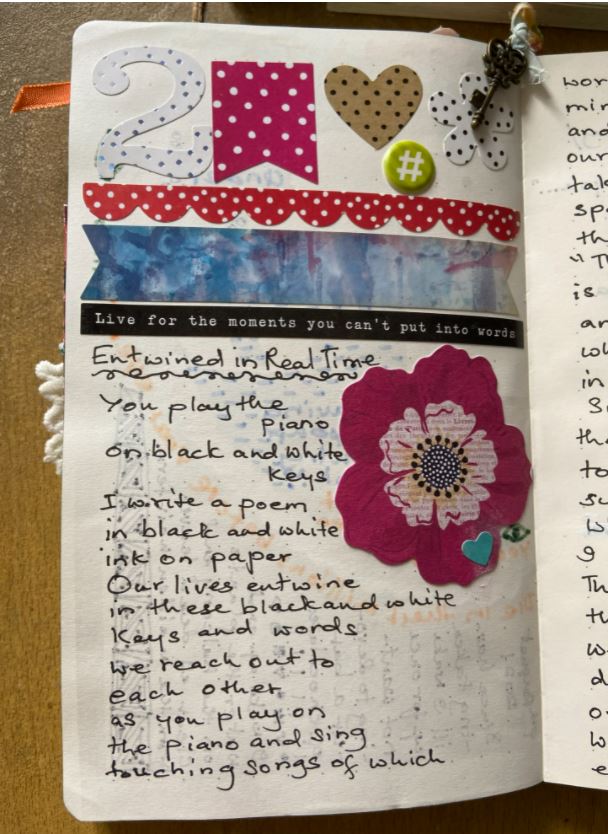 2
#
Live for the moments you can't put into words
Entwined in Real Time
You play the
piano
on black and white
keys
I write a poem
in black and white
ink on paper
Our lives entwine
in these black and white
keys and words
we reach out to
each other
as you play on
the piano and sing
touching songs of which
wor
min
and
our
tak
spe
th
"Th
is
an
wh
in
Si
tho
to
su
w
I
Th
tu
w
d
o
w
e